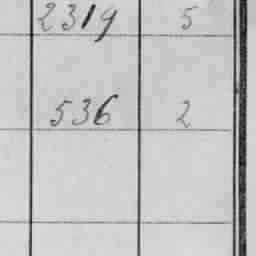 2319 5
536 2